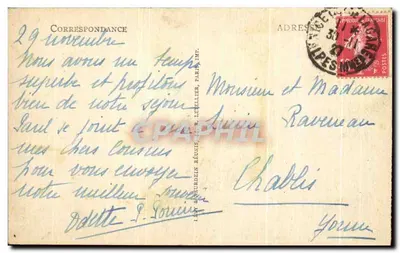 CORRESPONDANCE
ADRESSE
29 novembre
Nous avons un temps
superbe et profitons
bien de notre séjour
Paul se joint à moi
mes chers cousins
pour vous envoyer
notre meilleur souvenir
Odette P.
Monsieur et Madame
Raveneau
Chablis
Yonne